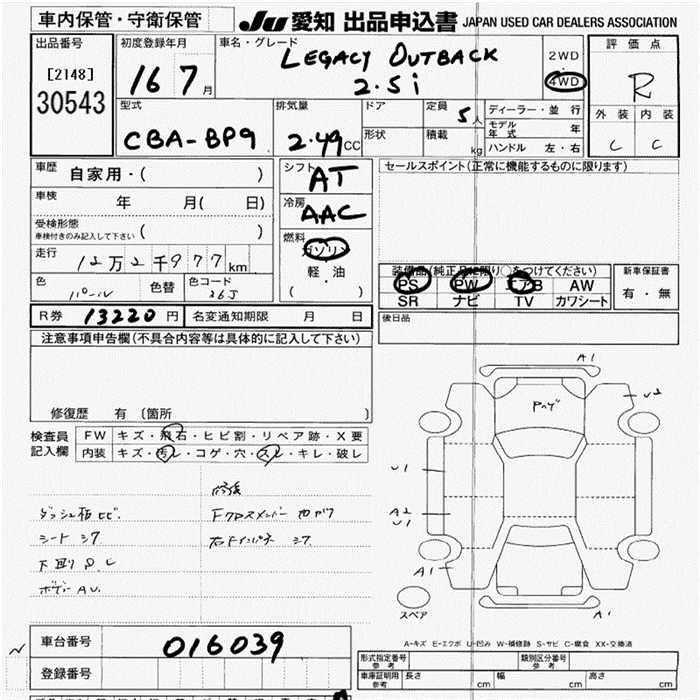 車内保管・守衛保管
JU 愛知 出品申込書 JAPAN USED CAR DEALERS ASSOCIATION
出品番号 初度登録年月 車名・グレード 評価点
[2148]
30543
16 7 月
LEGACY OUTBACK
2.5i
2WD
4WD
R
型式 排気量 ドア 定員 5 人 ディーラー・並行 外装 内装
CBA-BP9 2.49 CC
形状 積載 kg
モデル年式 年
ハンドル 左・右
C C
車歴 自家用・( )
シフト AT
セールスポイント(正常に機能するものに限ります)
車検 年 月( 日)
冷房 AAC
受検形態
車検付きのみ記入して下さい ( )
燃料 ガソリン
軽・油
( )
走行 12万2千977 km
装備品(純正品に限り○をつけてください) 新車保証書
PS PW エアB AW 有・無
SR ナビ TV カワシート
色 パール 色替 色コード 36J
後日品
R券 13220 円 名変通知期限 月 日
注意事項申告欄(不具合内容等は具体的に記入して下さい)
修復歴 有 〔箇所 〕
検査員 FW キズ・飛石・ヒビ割・リペア跡・X要
記入欄 内装 キズ・汚レ・コゲ・穴・スレ・キレ・破レ
修復
ダッシュ板ヒビ.
Fクロスメンバー
シート シワ
右Fインパネ シワ
下廻り P. C
ボディー AU.
A1
U2
U1
A2
U1
A1
A1
スペア
A-キズ E-エクボ U-凹み W-補修跡 S-サビ C-腐食 XX-交換済
車台番号 016039
登録番号
形式指定番号 参考 類別区分番号 参考
車庫証明用 参考 長さ cm 幅 cm 高さ cm